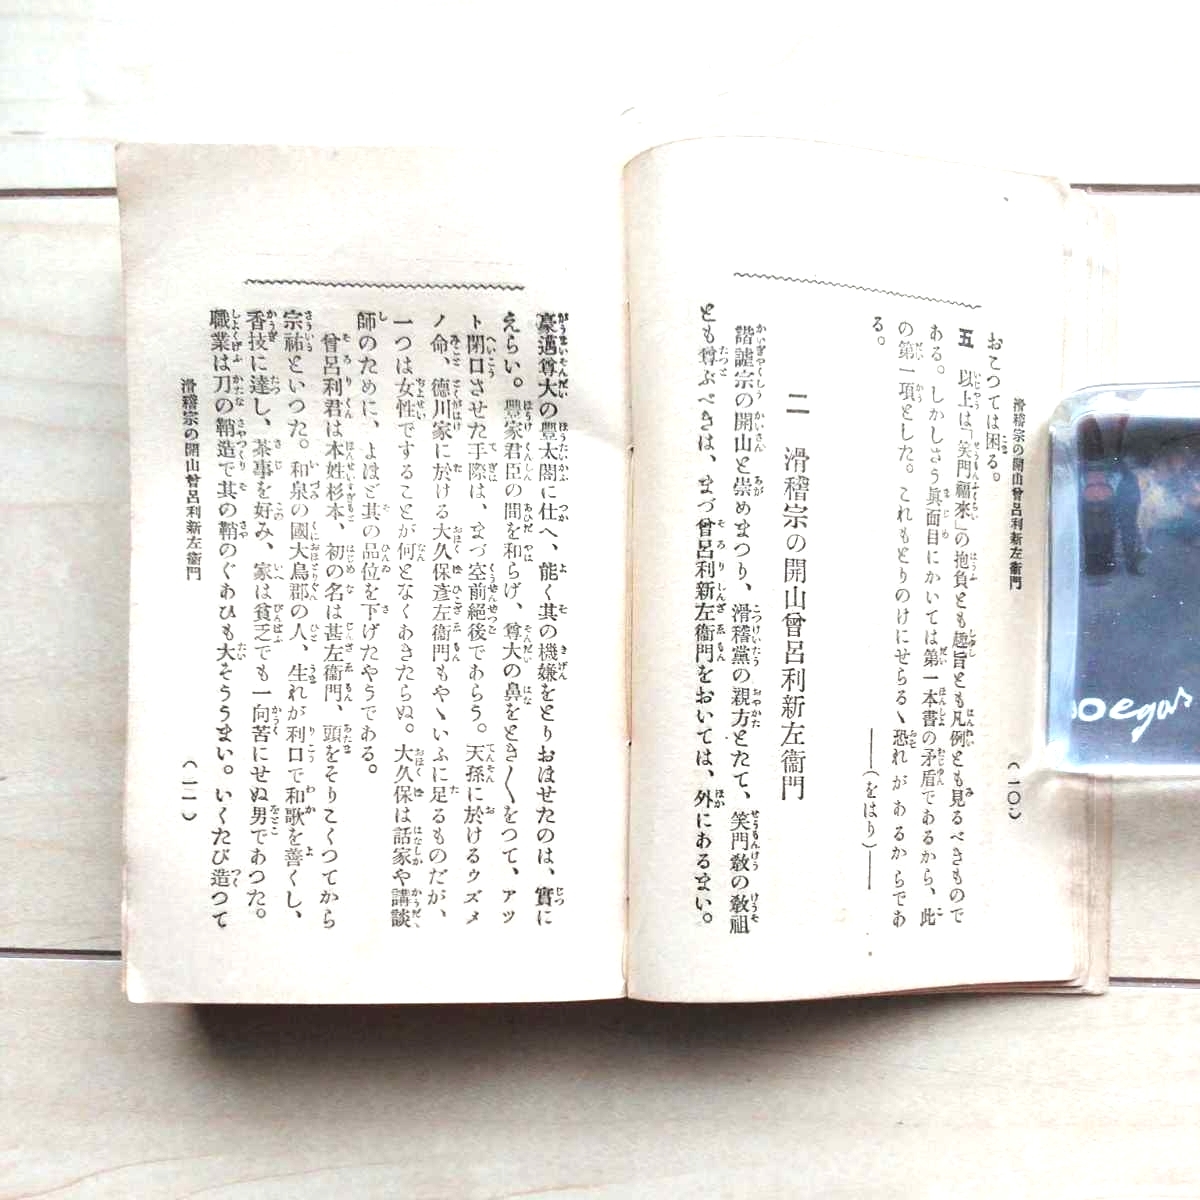 滑稽宗の開山曾呂利新左衞門
(一〇)
おこつては困る。
五 以上は、「笑門福來」の抱負とも趣旨とも凡例とも見るべきもので
ある。しかしさう眞面目にかいては第一本書の矛盾であるから、此
の第一項とした。これもとりのけにせらるゝ恐れがあるからであ
る。
――(をはり)――
二 滑稽宗の開山曾呂利新左衞門
諧謔宗の開山と崇めまつり、滑稽黨の親方とたて、笑門敎の敎祖
とも尊ぶべきは、まづ曾呂利新左衞門をおいては、外にあるまい。
豪邁尊大の豐太閤に仕へ、能く其の機嫌をとりおほせたのは、實に
えらい。豐家君臣の間を和らげ、尊大の鼻をとき〱をつて、アツ
ト閉口させた手際は、まづ空前絕後であらう。天孫に於けるウズメ
ノ命、德川家に於ける大久保彥左衞門もやゝいふに足るものだが、
一つは女性ですることが何となくあきたらぬ。大久保は話家や講談
師のために、よほど其の品位を下げたやうである。
曾呂利君は本姓杉本、初の名は甚左衞門、頭をそりこくつてから
宗祐といつた。和泉の國大鳥郡の人、生れが利口で和歌を善くし、
香技に達し、茶事を好み、家は貧乏でも一向苦にせぬ男であつた。
職業は刀の鞘造で其の鞘のぐあひも大そううまい。いくたび造つて
滑稽宗の開山曾呂利新左衞門
(一一)
oegas